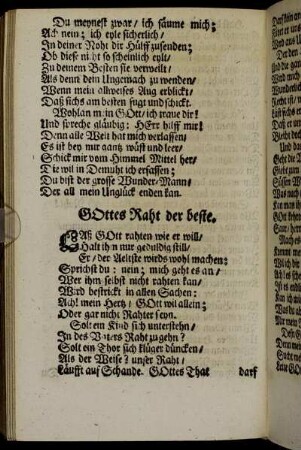 Du meynest zwar/ ich säume mich;
Ach nein; ich eyle sicherlich/
In deiner Noht dir Hülff zusenden;
Ob diese nicht so scheinlich eylt/
Zu deinem Besten sie verweilt/
Als denn dein Ungemach zu wenden/
Wenn mein allweises Aug erblickt/
Daß sichs am besten fugt und schickt.
Wohlan mein GOtt/ ich traue dir!
Und spreche gläubig: HErr hilff mir!
Denn alle Welt hat mich verlassen/
Es ist bey mir gantz wüst und leer/
Schick mir vom Himmel Mittel her/
Die wil in Demuht ich erfassen;
Du bist der grosse Wunder-Mann/
Der all mein Unglück enden kan.
GOttes Raht der beste.
LAß GOtt rahten wie er will/
Halt ihm nur gedultig still/
Er/ der Aeltste wirds wohl machen;
Sprichst du: nein; mich geht es an/
Wer ihm selbst nicht rahten kan/
Wird bestrickt in allen Sachen:
Ach! mein Hertz/ GOtt wil allein;
Oder gar nicht Rahter seyn.
Solt ein Kind sich unterstehn/
In des Vaters Raht zu gehn?
Solt ein Thor sich klüger düncken/
Als der Weise? unser Raht/
Läufft auf Schande. GOttes That
darf